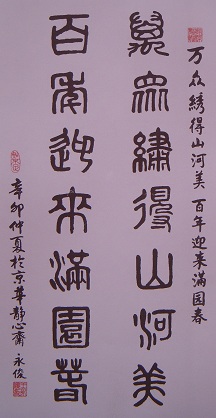 万众绣得山河美 百年迎来满园春
萬眾繡得山河美
百年迎來滿園春
辛卯仲夏於京華静心齋 永俊